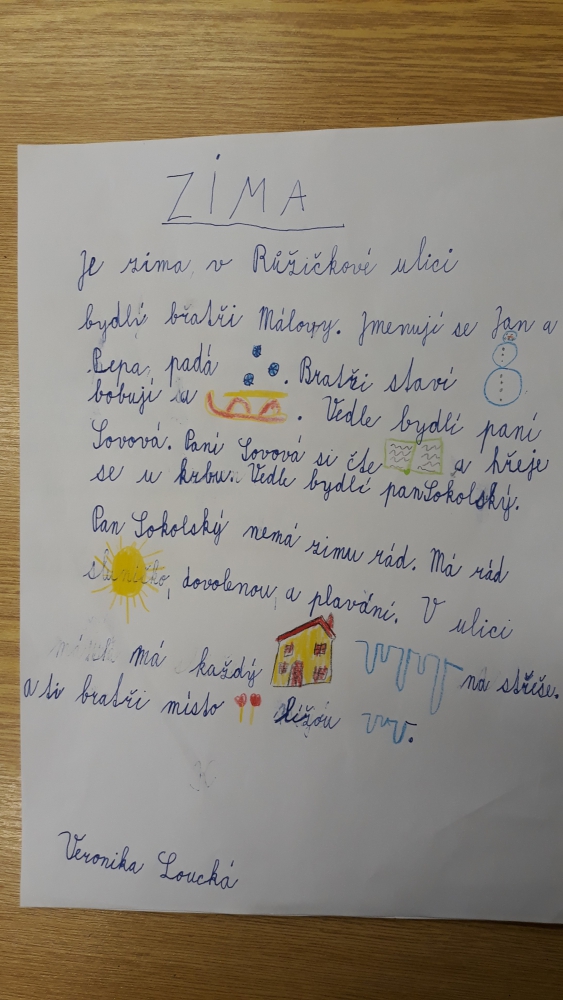 ZİMA
Je zima v Růžičkové ulici
bydlí bratři Málovy. Jmenují se Jan a
Pepa, padá . Bratři staví
bobují a . Vedle bydlí paní
Sovová. Paní Sovová si čte a hřeje
se u krbu. Vedle bydlí pan Sokolský.
Pan Sokolský nemá zimu rád. Má rád
sluníčko, dovolenou, a plavání. V ulici
má každý na střeše.
a ti bratři místo lížou .
Veronika Loucká